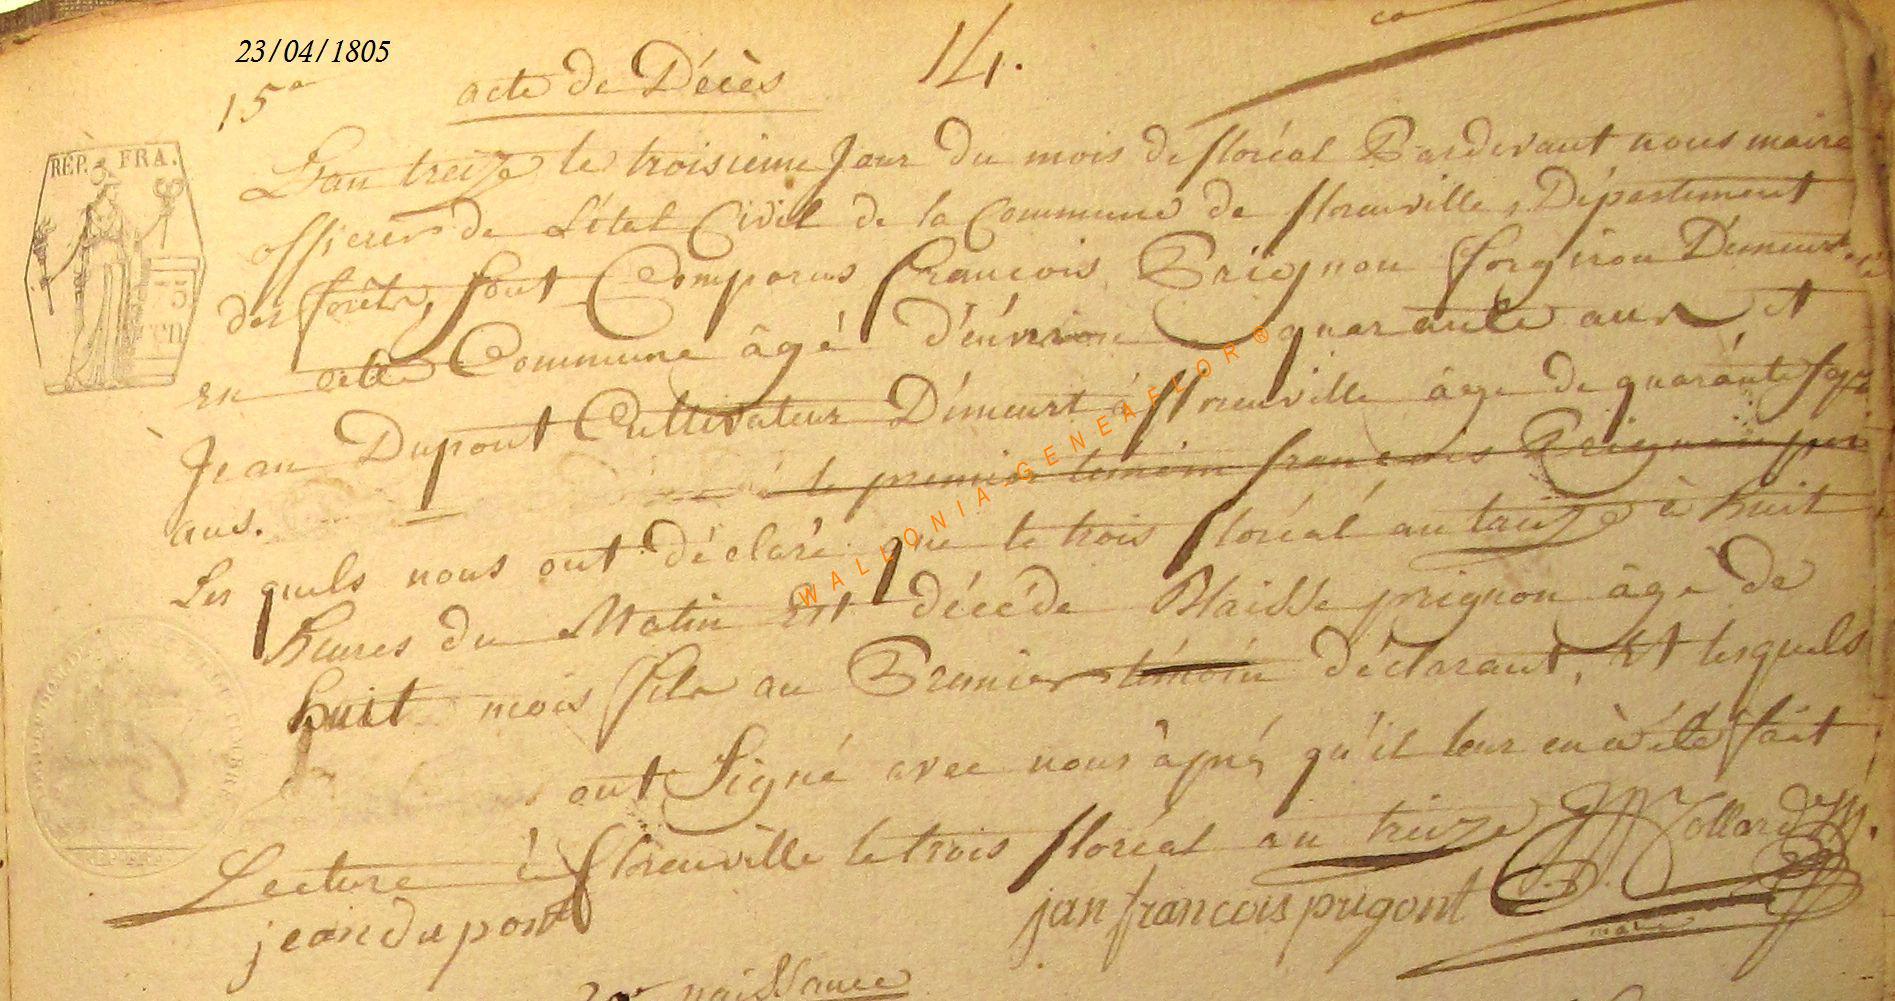 23/04/1805
14.
15e acte de Décès
RÉP. FRA.
L'an treize le troisieme Jour Du mois de floréal Pardevant nous maire
officier de L'état Civil de la Commune de florenville, Département
des forêts, sont Comparus francois Prignon forgeron Demeurt
en cette Commune âgé d'énviron quarante ans, et
Jean Dupont Cultivateur Démeurt à florenville âge de quarante sept
ans. le premier témoin francois Prignon
Les quels nous ont déclaré que le trois floréal an treize à huit
heures du Matin Est décéde Blaisse prignon âge de
huit mois fils au Premier témoin déclarant, Et lesquels
ont Signé avec nous aprés qu'il leur en à été fait
Lecture à florenville le trois floréal an treize
jean dupont
jan francois prigont
maire
naissance
WALLONIA-GENEAFLOR®